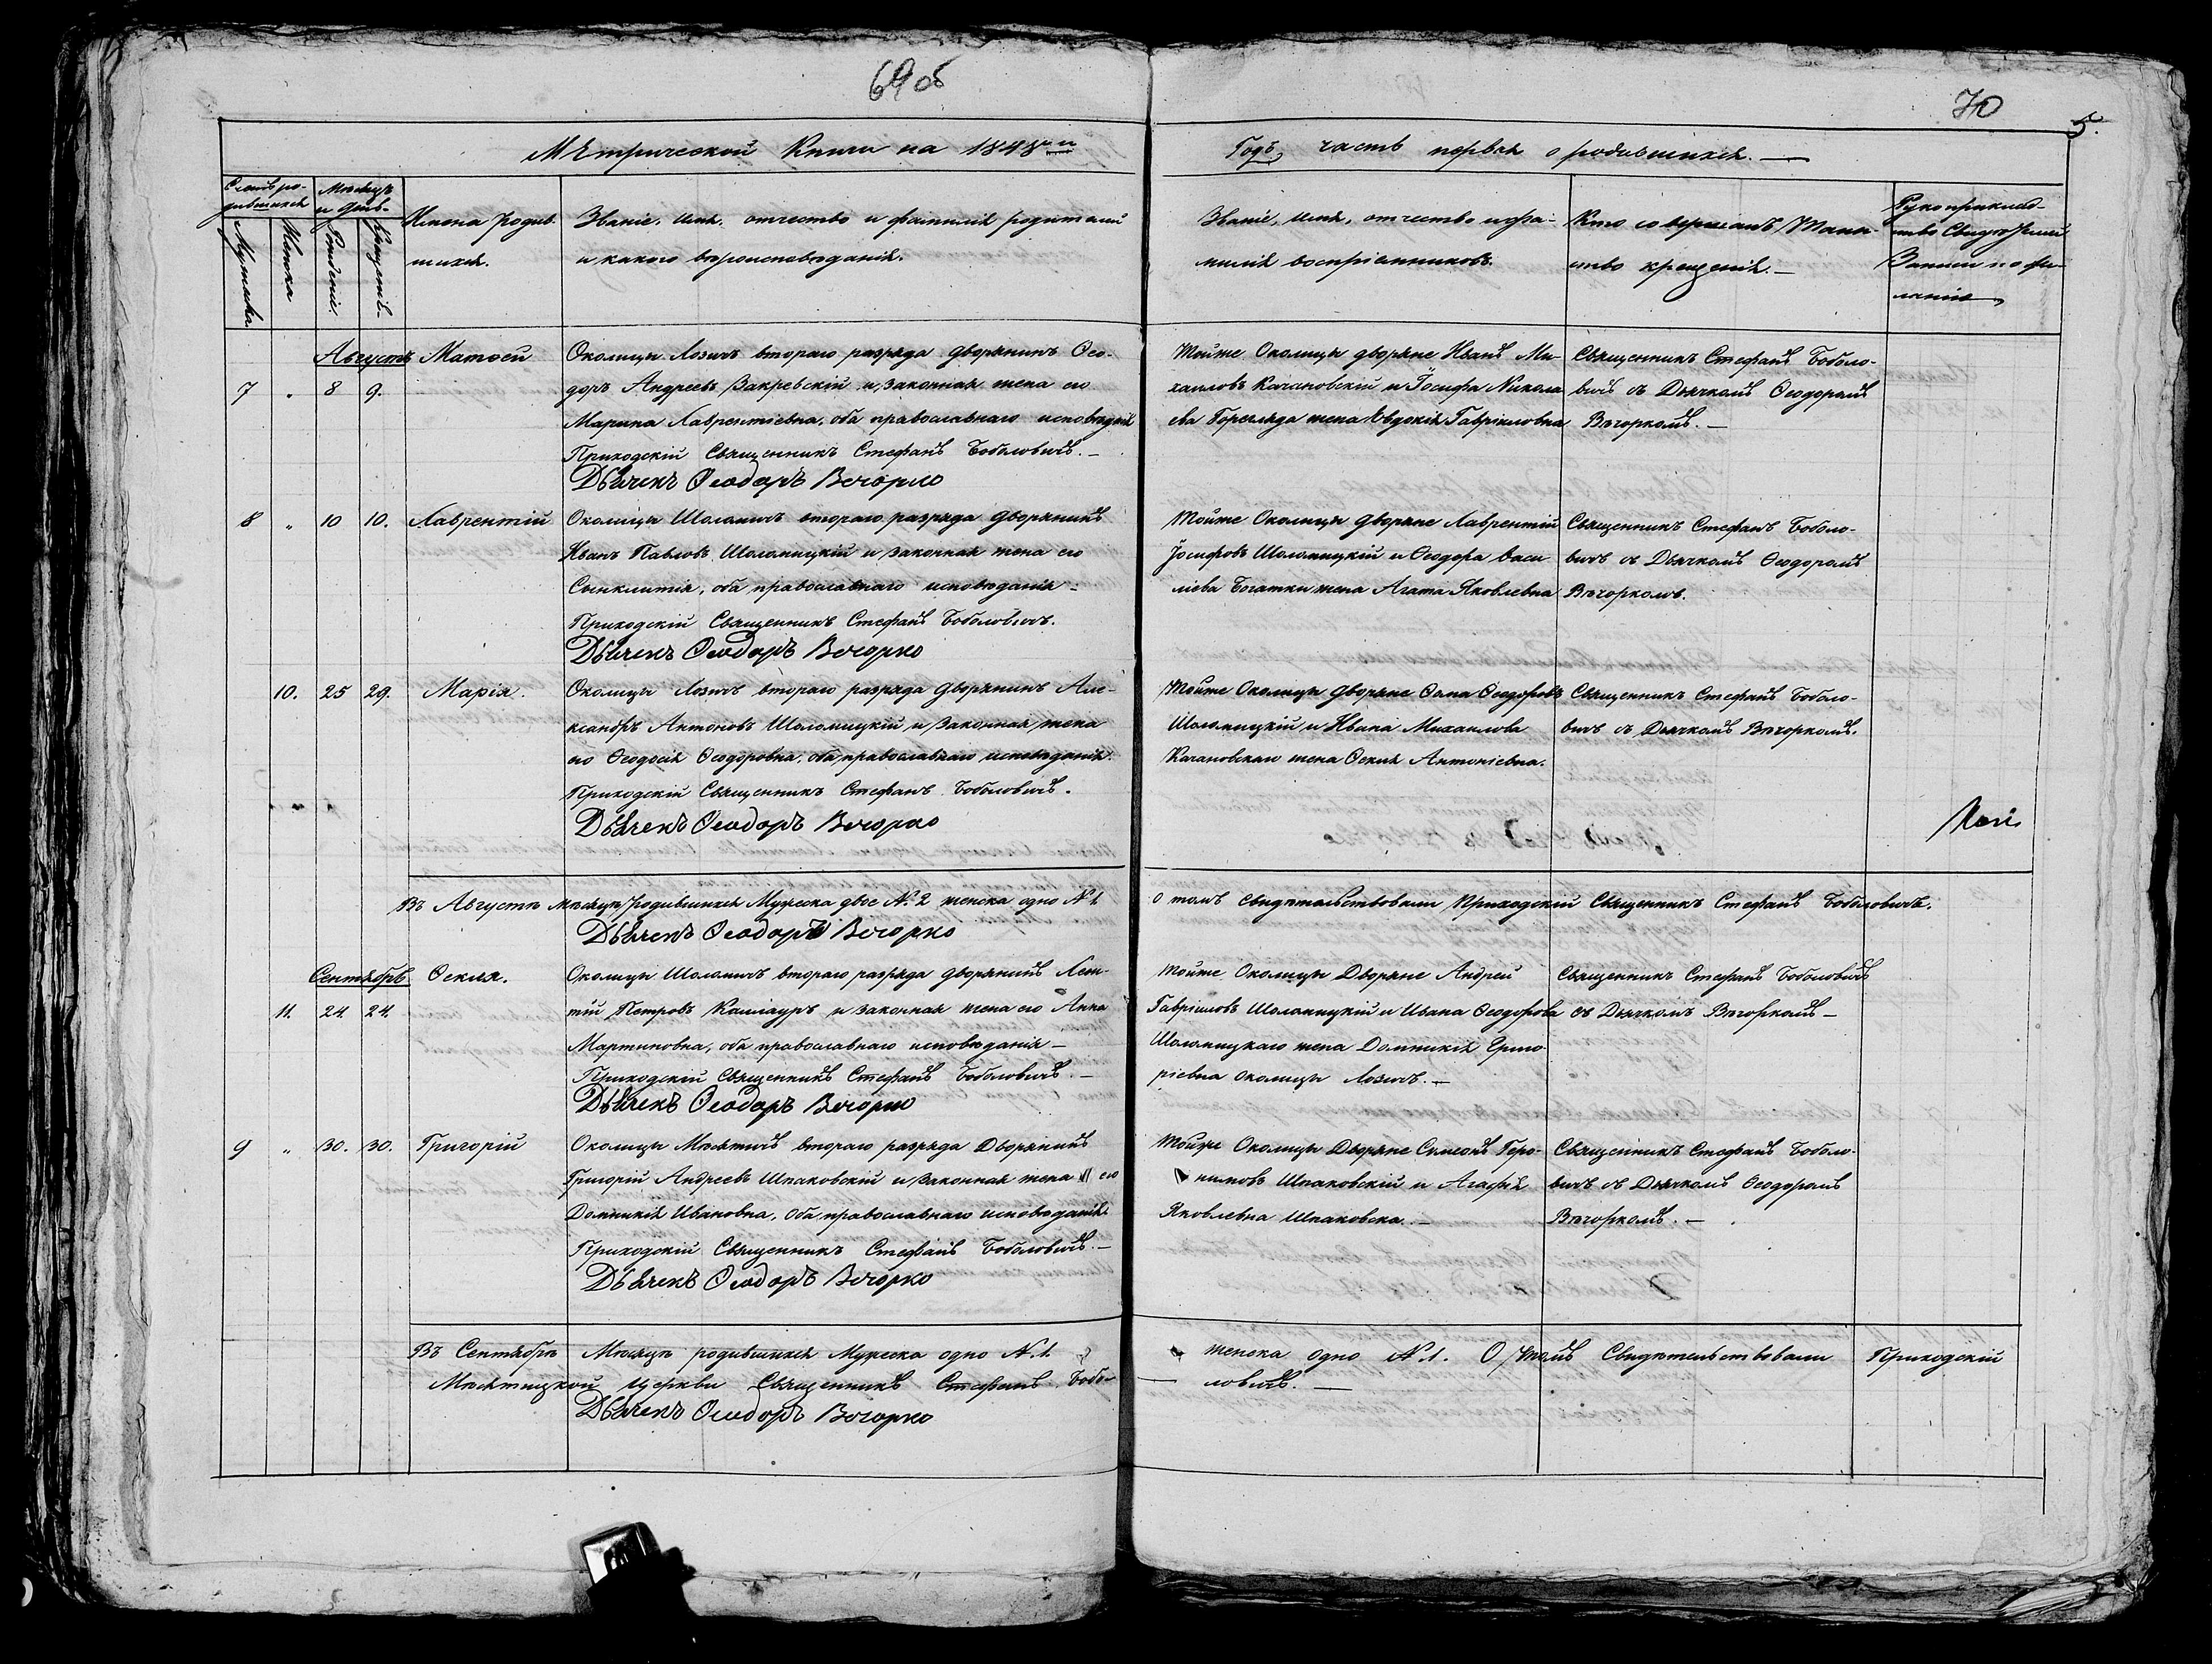 69 об
70
5.
Метрической Книги на 1848й
Годъ, часть первая о родившихся. —
Счетъ ро-
дившихся
Мѣсяцъ
и день
Мужеска
Женска
Рожденіе
Крещеніе
Имена родив-
шихся.
Званіе, имя, отчество и фамилія родителей
и какого вѣроисповѣданія.
Званіе, имя, отчество и фа-
милія воспріемниковъ.
Кто совершалъ Таин-
ство крещенія. —
Рукоприклад-
ство Свидѣтелей
Записи по же-
ланію
Августъ Матѳей
7 „ 8 9.
Околицы Лозичъ втораго разряда дворянинъ Ѳео-
доръ Андреевъ Закревскій и законная жена его
Марина Лаврентіевна, оба православнаго исповѣданія
Приходскій Священникъ Стефанъ Боболовичъ. —
Дьячекъ Ѳеодоръ Вечорко
Тойже Околицы дворяне Иванъ Ми-
хаиловъ Качановскій и Іосифа Никола
ева Горегляда жена Евдокія Гавріиловна
Священникъ Стефанъ Боболо-
вичъ съ Дьячкомъ Ѳеодоромъ
Вѣчоркомъ. —
8 „ 10 10. Лаврентій
Околицы Шоломичъ втораго разряда дворянинъ
Иванъ Павловъ Шоломицкій и законная жена его
Сынклитія, оба православнаго исповѣданія —
Приходскій Священникъ Стефанъ Боболовичъ.
Дьячекъ Ѳеодоръ Вечорко
Тойже Околицы дворяне Лаврентій
Іосифовъ Шоломицкій и Ѳеодора Васи
ліева Богатки жена Агата Яковлевна
Священникъ Стефанъ Боболо-
вичъ съ Дьячкомъ Ѳеодоромъ
Вѣчоркомъ.
10. 25 29. Марія.
Околицы Лозичъ втораго разряда дворянинъ Але-
ксандръ Антоновъ Шоломицкій и законная жена
его Ѳеодосія Ѳеодоровна, оба православнаго исповѣданія.
Приходскій Священникъ Стефанъ Боболовичъ.
Дьячекъ Ѳеодоръ Вечорко
Тойже Околицы дворяне Ѳома Ѳеодоровъ
Шоломицкій и Ивана Михаилова
Качановскаго жена Ѳекла Антоніевна.
Священникъ Стефанъ Боболо-
вичъ съ Дьячкомъ Вѣчоркомъ.
Въ Августѣ мѣсяцѣ родившихся Мужеска двое № 2 женска одно № 1
о томъ свидѣтельствовали Приходскій Священникъ Стефанъ Боболовичъ.
Дьячекъ Ѳеодоръ Вечорко
Сентябрь Ѳекла.
11. 24. 24.
Околицы Шоломичъ втораго разряда дворянинъ Леон-
тій Петровъ Каллауръ и законная жена его Анна
Мартиновна, оба православнаго исповѣданія —
Приходскій Священникъ Стефанъ Боболовичъ. —
Дьячекъ Ѳеодоръ Вечорко
Тойже Околицы Дворяне Андрей
Гавріиловъ Шоломицкій и Ивана Ѳеодорова
Шоломицкаго жена Домникія Григо-
ріевна околицы Лозичъ. —
Священникъ Стефанъ Боболовичъ
съ Дьячкомъ Вѣчоркомъ —
9 „ 30. 30. Григорій
Околицы Мѣлятичъ втораго разряда Дворянинъ
Григорій Андреевъ Шпаковскій и законная жена его
Домникія Ивановна, оба православнаго исповѣданія
Приходскій Священникъ Стефанъ Боболовичъ. —
Дьячекъ Ѳеодоръ Вечорко
Тойже Околицы Дворяне Симеонъ Геро-
нимовъ Шпаковскій и Агафія
Яковлевна Шпаковска. —
Священникъ Стефанъ Боболо-
вичъ съ Дьячкомъ Ѳеодоромъ
Вѣчоркомъ. —
Въ Сентябрѣ Мѣсяцѣ родившихся Мужеска одно № 1.
женска одно № 1. О томъ Свидѣтельствовали Приходскій
Мѣлятицкой церкви Священникъ Стефанъ Бобо-
ловичъ. —
Дьячекъ Ѳеодоръ Вечорко